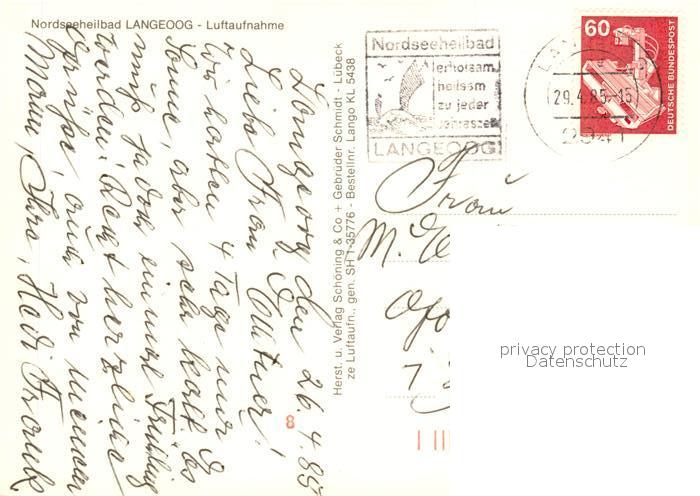 Nordseeheilbad LANGEOOG - Luftaufnahme
Langeoog den 26.4.85
Liebe Frau
Wir hatten 4 Tage nur
Sonne, aber sehr kalt. es
muß ja doch einmal Frühling
werden! Recht herzliche
Grüße, auch von meinem
Mann, Ihre, Heidi Frank
Herst. u. Verlag Schöning & Co + Gebrüder Schmidt - Lübeck
ze Luftaufn., gen. SH 1-35776 - Bestellnr. Lango KL 5438
8
Nordseeheilbad
erholsam
heilsam
zu jeder
Jahreszeit
LANGEOOG
29.4.85-15
2941
60
DEUTSCHE BUNDESPOST
Frau
M.
7
privacy protection
Datenschutz